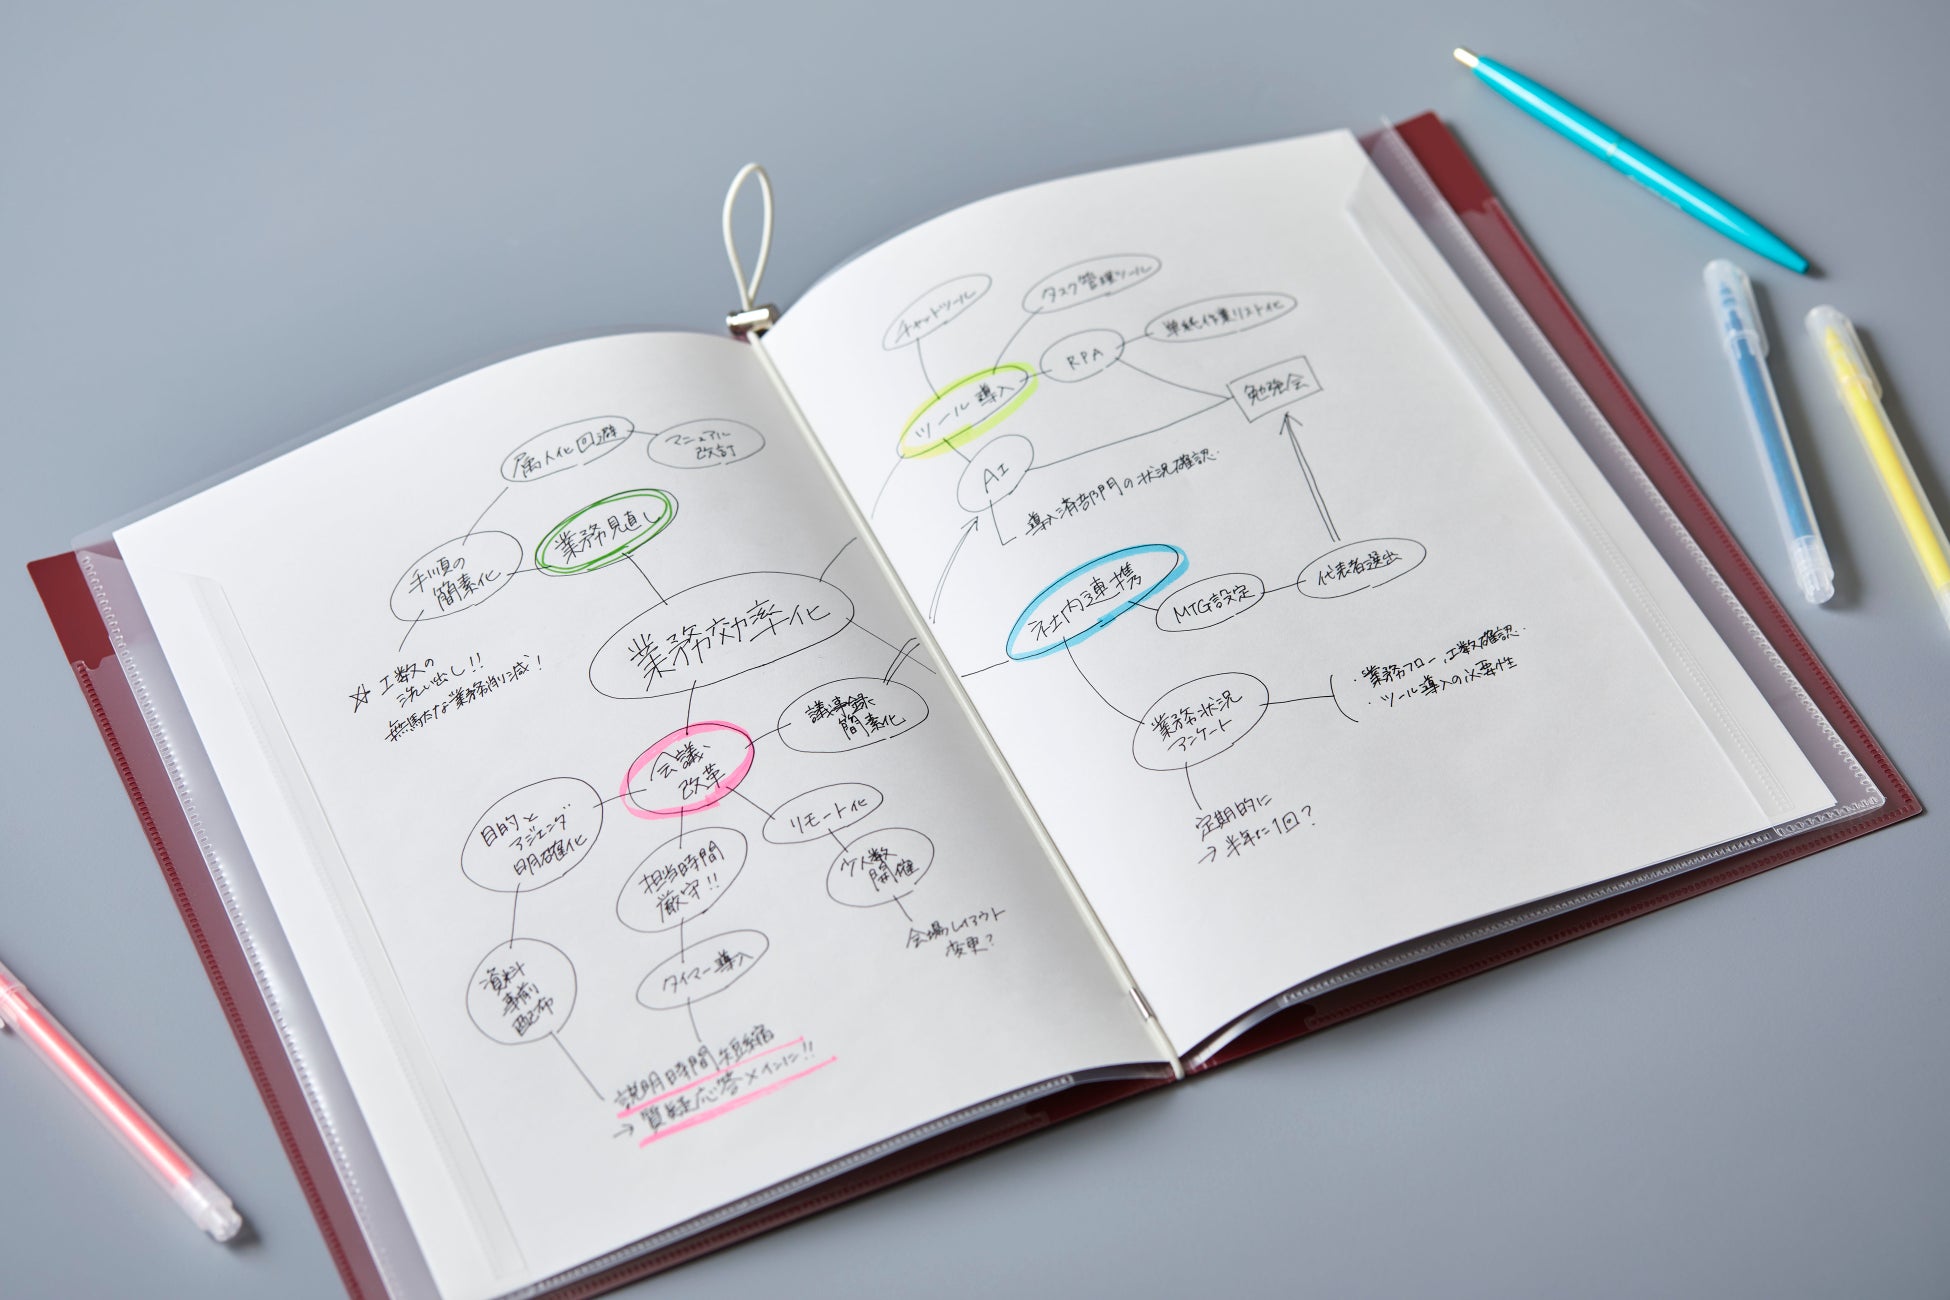 属人化回避
マニュアル
改訂
業務見直し
手順の
簡素化
☆ 工数の
洗い出し!!
無駄な業務削減!
業務効率化
議事録
簡素化
会議
改革
目的と
アジェンダ
明確化
担当時間
厳守!!
リモート化
少人数
開催
会場レイアウト
変更?
資料
事前
配布
タイマー導入
説明時間短縮
→ 質疑応答メインに!!
チャットツール
タスク管理ツール
RPA
単純作業リスト化
ツール導入
勉強会
AI
導入済部門の状況確認
社内連携
MTG設定
代表者選出
業務状況
アンケート
・業務フロー、工数確認
・ツール導入の必要性
定期的に
→ 半年に1回?